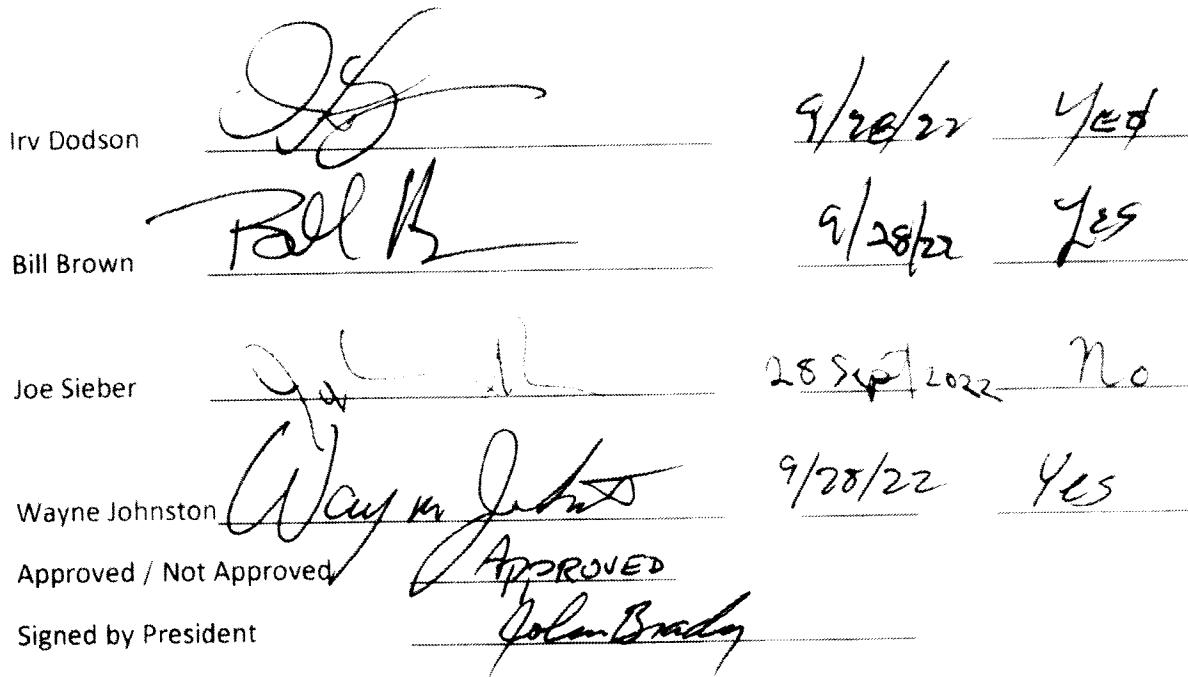 Irv Dodson 9/28/22 Yes
Bill Brown Bill B 9/28/22 Yes
Joe Sieber 28 Sept 2022 No
Wayne Johnston Wayne Johnston 9/28/22 Yes
Approved / Not Approved APPROVED
Signed by President John Brady